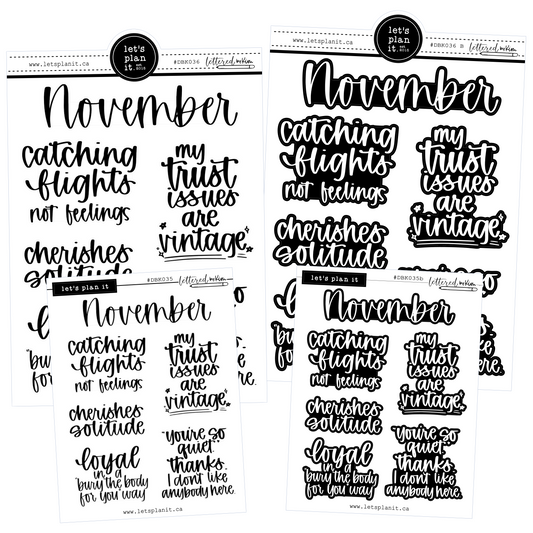 let's
plan
it.
EST. 2014
www.letsplanit.ca
#DBK036
lettered. mrkim
November
catching
flights
not feelings
my
trust
issues
are
vintage.
cherishes
solitude
let's
plan
it.
EST. 2014
www.letsplanit.ca
#DBK036 B
lettered. mrkim
November
catching
flights
not feelings
my
trust
issues
are
vintage.
cherishes
solitude
let's plan it
#DBK035
lettered
November
catching
flights
not feelings
my
trust
issues
are
vintage.
cherishes
solitude
"you're so
quiet."
thanks.
I don't like
anybody here.
loyal
in a
"bury the body
for you" way
www.letsplanit.ca
let's plan it
#DBK035b
lettered
November
catching
flights
not feelings
my
trust
issues
are
vintage.
cherishes
solitude
"you're so
quiet."
thanks.
I don't like
anybody here.
loyal
in a
"bury the body
for you" way
www.letsplanit.ca